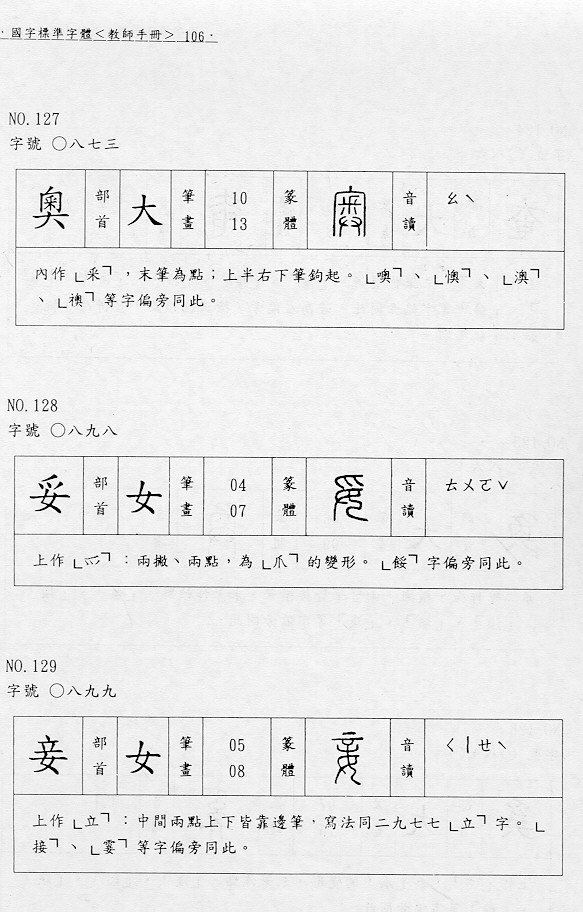 ·國字標準字體＜教師手冊＞ 106·
NO.127
字號 ○八七三
奧 部首 大 筆畫 10 13 篆體 音讀 ㄠˋ
內作「釆」，末筆為點；上半右下筆鉤起。「噢」、「懊」、「澳」
、「襖」等字偏旁同此。
NO.128
字號 ○八九八
妥 部首 女 筆畫 04 07 篆體 音讀 ㄊㄨㄛˇ
上作「爫」：兩撇、兩點，為「爪」的變形。「餒」字偏旁同此。
NO.129
字號 ○八九九
妾 部首 女 筆畫 05 08 篆體 音讀 ㄑㄧㄝˋ
上作「立」：中間兩點上下皆靠邊筆，寫法同二九七七「立」字。「
接」、「霎」等字偏旁同此。